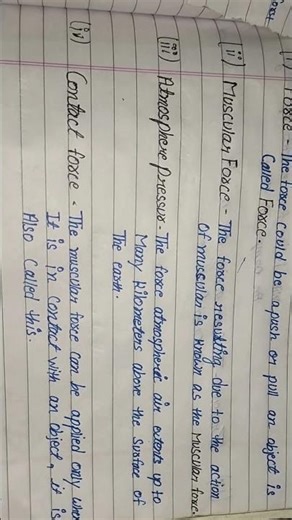 (i) Force - The force could be a push or pull an object is
Called Force.
(ii) Muscular Force - The force resulting due to the action
Of muscular is known as the Muscular force.
(iii) Atmosphere Pressur - The force atmospheric air extents up to
Many kilometers above the surface of
The earth.
(iv) Contact force - The muscular force can be applied only when
It is in contact with an object, it is
Also Called this.